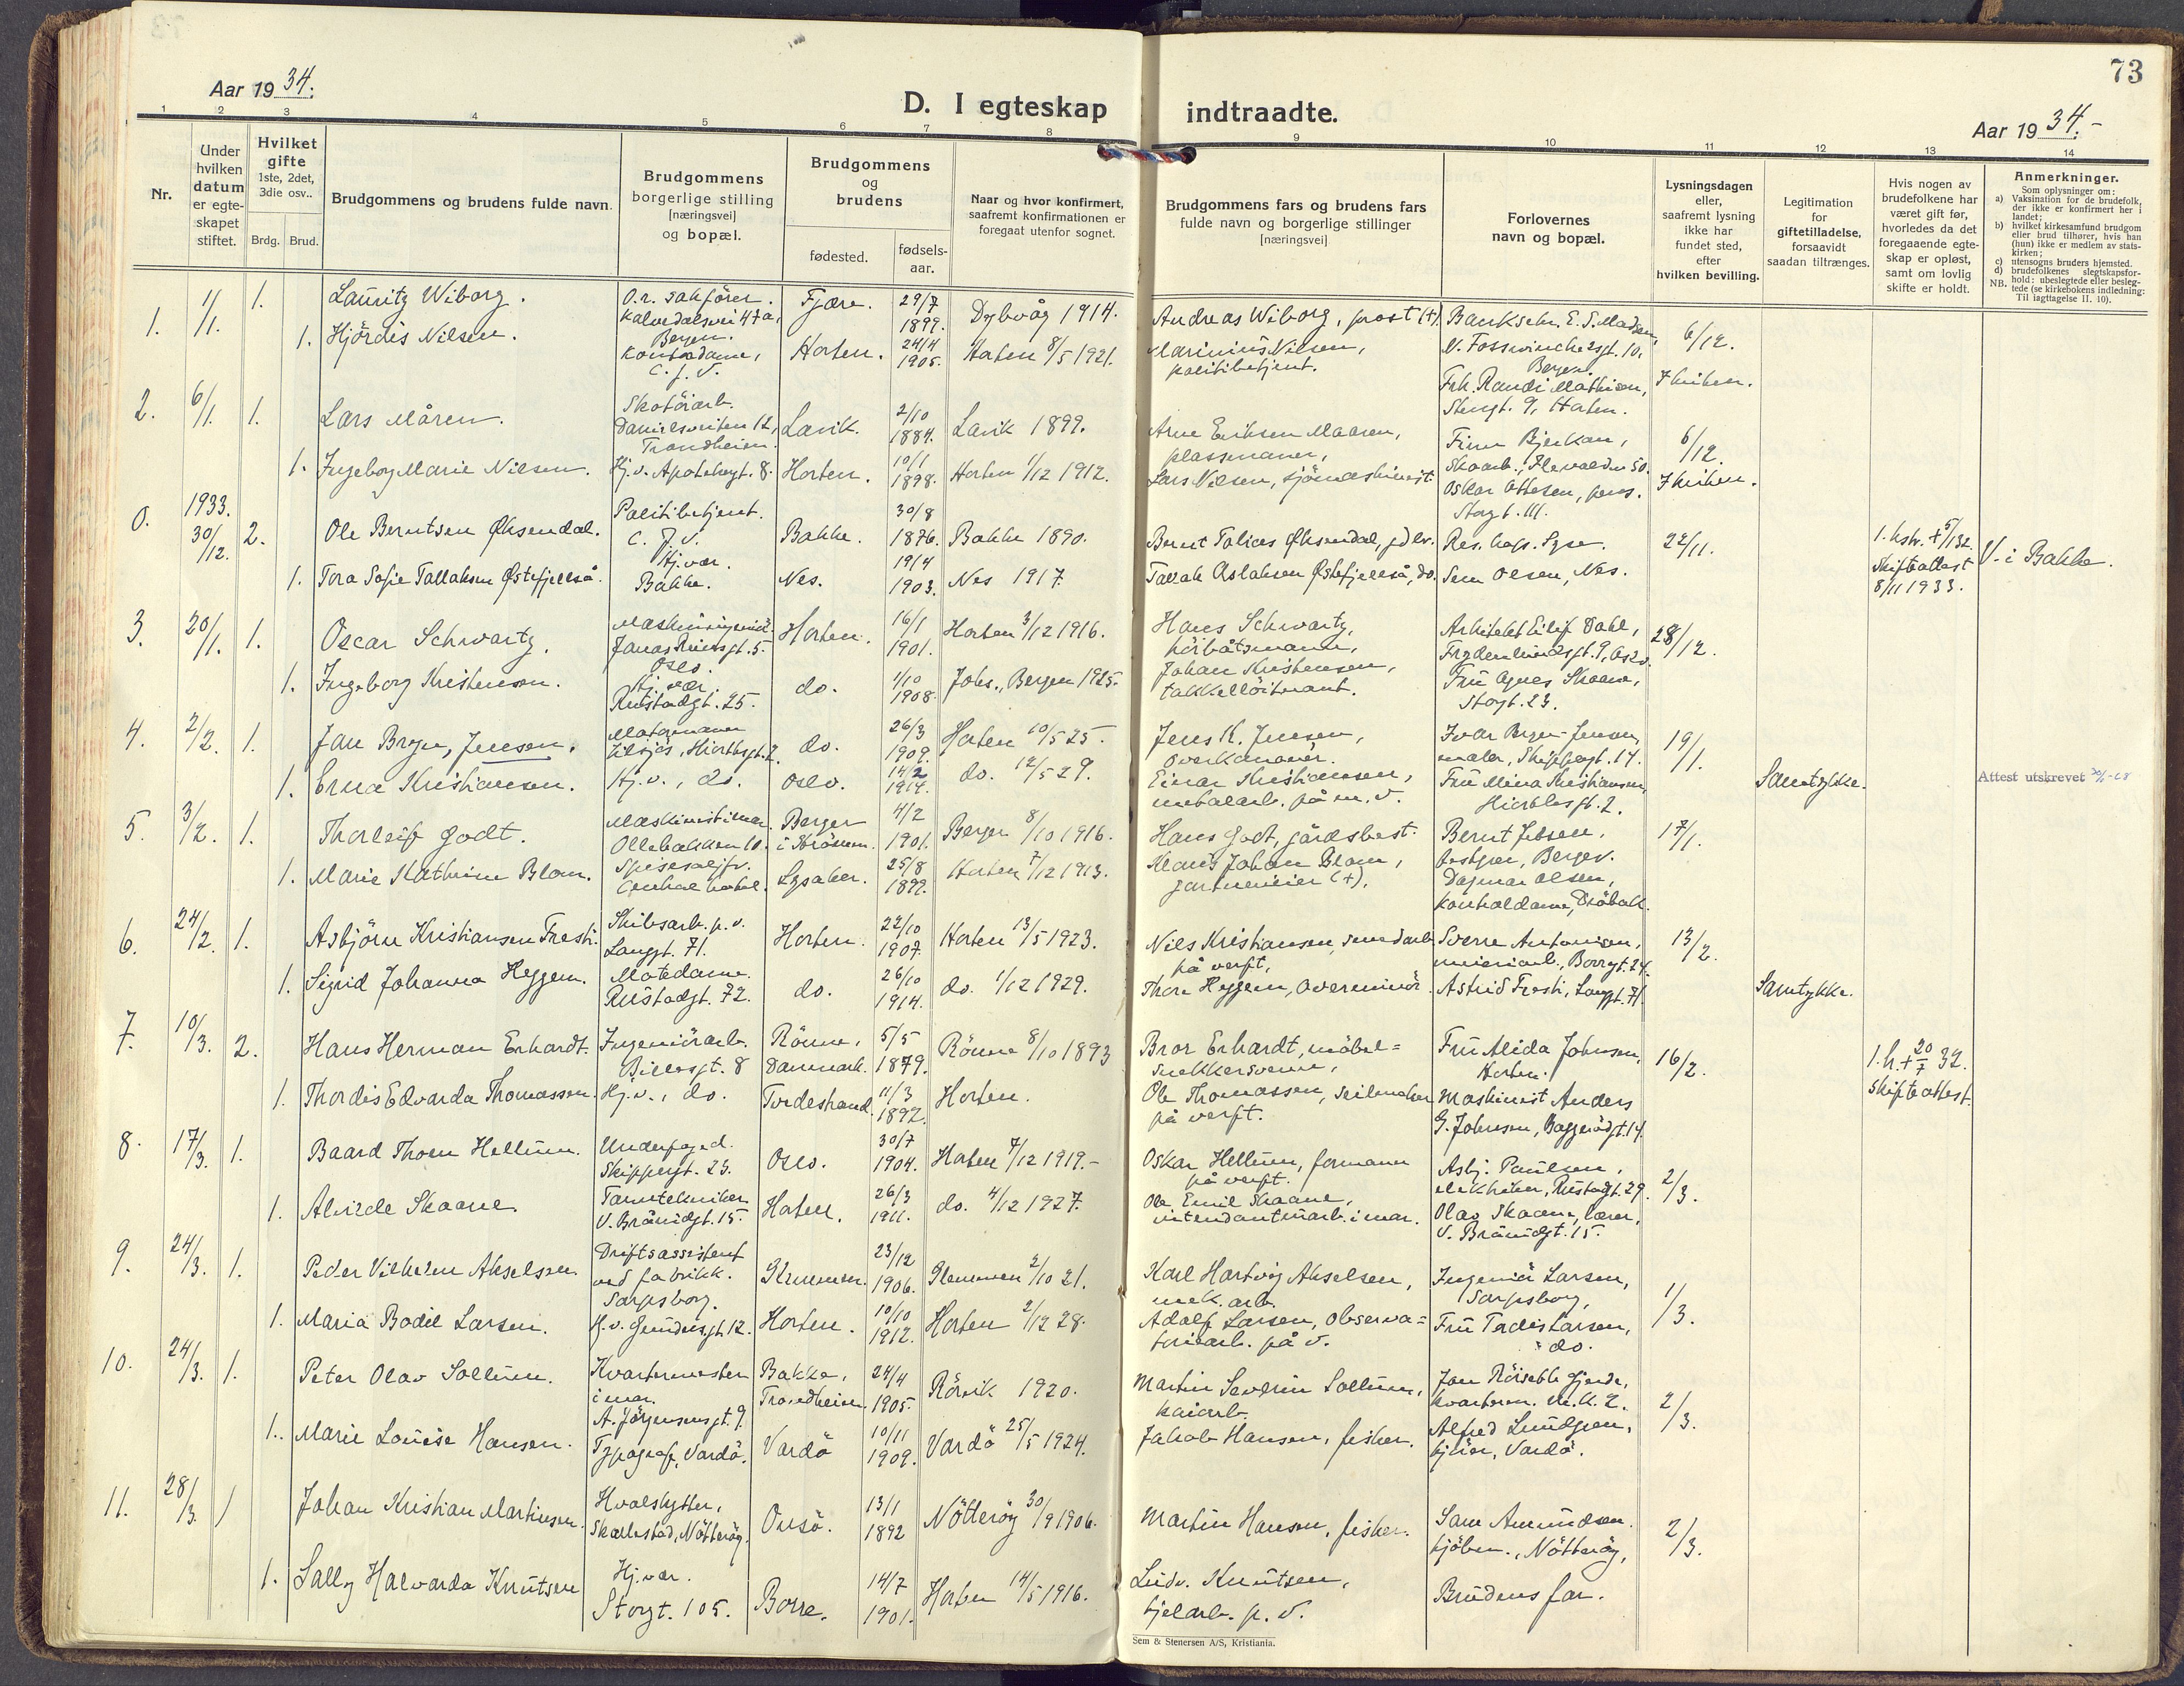 73
Aar 19 34.
D. I egteskap indtraadte.
Aar 19 34.-
1 2 3 4 5 6 7 8 9 10 11 12 13 14
Nr.
Under hvilken datum er egteskapet stiftet.
Hvilket gifte 1ste, 2det, 3die osv..
Brdg. Brud.
Brudgommens og brudens fulde navn.
Brudgommens borgerlige stilling [næringsvei] og bopæl.
Brudgommens og brudens
fødested.
fødsels-aar.
Naar og hvor konfirmert, saafremt konfirmationen er foregaat utenfor sognet.
Brudgommens fars og brudens fars fulde navn og borgerlige stillinger [næringsvei]
Forlovernes navn og bopæl.
Lysningsdagen eller, saafremt lysning ikke har fundet sted, efter hvilken bevilling.
Legitimation for giftetilladelse, forsaavidt saadan tiltrænges.
Hvis nogen av brudefolkene har været gift før, hvorledes da det foregaaende egteskap er opløst, samt om lovlig skifte er holdt.
Anmerkninger.
Som oplysninger om:
a) Vaksination for de brudefolk, der ikke er konfirmert her i landet;
b) hvilket kirkesamfund brudgom eller brud tilhører, hvis han (hun) ikke er medlem av statskirken;
c) utensogns bruders hjemsted.
d) brudefolkenes slegtskapsforhold: ubeslegtede eller beslegtede (se kirkebokens indledning:
NB. Til iagttagelse II. 10).
1. 1/1. 1. Lauritz Wiborg. O.r. sakfører. Kalvedalsvei 47a, Bergen. Fjære. 29/7 1899. Dybvåg 1914. Andreas Wiborg, prost (+). Banksekr. E. S. Madsen, Bergen. 6/12.
1. Hjördis Nilsen. Kontordame, C. J. V. Horten. 24/4 1905. Horten 8/5 1921. Marinius Nilsen, politibetjent. Frk. Randi Mathisen, Stengt. 9, Horten. I kirken.
2. 6/1. 1. Lars Måren. Skotöiarb. Trondheim. Lavik. 2/10 1884. Lavik 1899. Arne Eriksen Maaren, plassmann, Finn Bjerkan, 6/12.
1. Ingeborg Marie Nilsen. Hj.v. Apotekergt. 8. Horten. 10/1 1898. Horten 1/12 1912. Lars Nilsen, sjömaskinist. Oskar Ottesen, pens. Storgt. 111. I kirken.
0. 1933. 30/12. 2. Ole Berntsen Øksendal. Politibetjent. C. J. V. Bakke. 30/8 1876. Bakke 1890. Bernt Tolias Øksendal, gdbr. Res. kap. Lyse. 22/11. 1. hstr. + 5/1 32. Skifteattest 8/11 1933. V. i Bakke.
1. Tora Sofie Tallaksen Østefjellså. Hj.vær. Bakke. Nes. 19/4 1903. Nes 1917 Tallak Aslaksen Østefjellså, do. Sem Olsen, Nes.
3. 20/1. 1. Oscar Schwartz. Maskiningeniör. Jonas Reinsgt. 5. Oslo. Horten. 16/1 1901. Horten 3/12 1916. Hans Schwartz, Arkitekt Eilif Dahl, Frydenlundsgt. 9, Oslo. 28/12.
1. Ingeborg Kristensen. Hj. vær. Rustadgt. 25. do. 1/10 1908. Johs., Bergen 1925. Johan Kristensen, takkellöitnant. Fru Agnes Skaane, Storgt. 23.
4. 2/2. 1. Jan Bryn, Jensen. do. 26/3 1909. Horten 10/5 25. Jens K. Jensen, overkanoner. Ivar Bryn-Jensen, maler, Skippergt. 14. 19/1.
1. Erna Kristiansen. Hj.v., do. Oslo. 14/2 1914. do. 12/5 29. Einar Kristiansen, metalarb. på m. v. Fru Mina Kristiansen, Hiorthsgt. 2. Samtykke. Attest utskrevet
5. 3/2. 1. Thorleif Godt. Ollebakken 10. Berger i Strömm. 4/2 1901. Berger 8/10 1916. Hans Godt, gårdsbest. Bernt Jebsen, Berger. 17/1.
1. Marie Kathrine Blom. Lysaker. 25/8 1899. Horten 7/12 1913. Klaus Johan Blom, gartneieier (+). Dagmar Olsen, kontordame, Dröbak.
6. 24/2. 1. Asbjörn Kristiansen Tresti. Skibsarb. p. v. Langgt. 71. Horten. 22/10 1907. Horten 13/5 1923. Nils Kristiansen, på verft, Sverre Antonisen, meieriarb., Borregt. 24. 13/2.
1. Sigrid Johanna Heggem. Motedame. Rustadgt. 72. do. 26/10 1914. do. 1/12 1929. Thore Heggem, overminör. Astrid Tresti, Langgt. 71. Samtykke.
7. 10/3. 2. Hans Herman Erhardt. Ingeniörarb. Billesgt. 8 Rönne, Danmark. 5/5 1879. Rönne 8/10 1893 Bror Erhardt, möbelsnekkersvenn, Fru Alida Johnsen, Horten. 16/2. 1. h. + 20/7 32. Skifteattest.
1. Thordis Edvarda Thomassen. Hj.v., do. Tvedestrand. 11/3 1892. Horten. Ole Thomassen, seilmaker på verft. Maskinist Anders G. Johnsen, Baggerödgt. 14.
8. 17/3. 1. Baard Thoen Hellum. Underfoged. Skippergt. 23. Oslo. 30/7 1904. Horten 7/12 1919.- Oskar Hellum, formann på verft. Asbj. Paulsen, elektriker, Rustadgt. 29. 2/3.
1. Alvilde Skaane. Tanntekniker V. Brånidgt. 15. Horten. 26/3 1911. do. 4/12 1927. Ole Emil Skaane, intendanturarb. i mar. Olav Skaane, lærer, V. Brånidgt. 15.
9. 24/3. 1. Peder Vilhelm Akselsen. Driftsassistent ved fabrikk. Sarpsborg. Glemmen. 23/12 1906. Glemmen 2/10 21. Karl Hartvig Akselsen, mek. arb. Ingeniör Larsen, Sarpsborg, 1/3.
1. Maria Bodil Larsen. Horten. 10/10 1912. Horten 2/12 28. Adolf Larsen, observatoriearb. på v. Fru Terdis Larsen, do.
10. 24/3. 1. Peter Olav Sollum. Kvartermester i mar. A. Jörgensensgt. 9. Bakke, Trondheim. 24/4 1905. Rörvik 1920. Martin Severin Sollum, kaiarb. Jan Röisebb Gjende, kvarterm. 2/3.
1. Marie Louise Hansen. Typograf, Vardö. Vardö 10/11 1909. Vardö 25/5 1924. Jakob Hansen, fisker. Alfred Lundgren, Vardö.
11. 28/3. 1 Johan Kristian Martinsen. Hvalskytter, Skallestad, Nötteröy. Onsö. 13/1 1892 Nötteröy 30/9 1906. Martin Hansen, fisker. Sam Amundsen. Nötteröy, 2/3.
1. Sally Halvarda Knutsen Hj.vær. Storgt. 105. Borre. 14/7 1901. Horten 14/5 1916. Ludv. Knutsen, kjelarb. p. v. Brudens far.
Sem & Stenersen A/S, Kristiania.